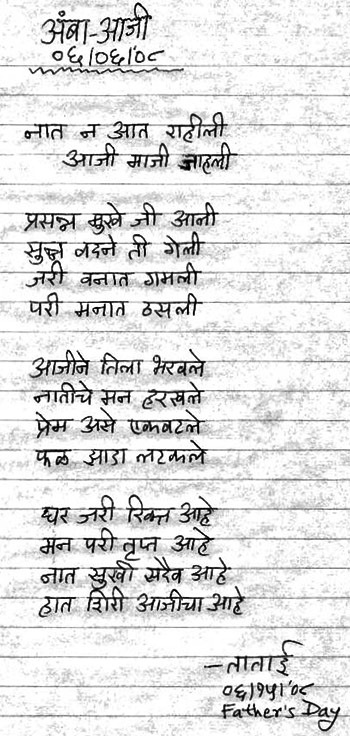 अंबा-आजी
०६/०६/०८
नात न आत राहीली
आजी माजी जाहली
प्रसन्न मुखे जी आनी
सुन्न वदने ती गेली
जरी वनात गमली
परी मनात ठसली
आजीने तिला भरवले
नातीचे मन हरखले
प्रेम असे एकवटले
फळ झाडा लटकले
घर जरी रिक्त आहे
मन परी तृप्त आहे
नात सुखी सदैव आहे
हात शिरी आजीचा आहे
–ताताई
०६/१५/'०८
Father's Day